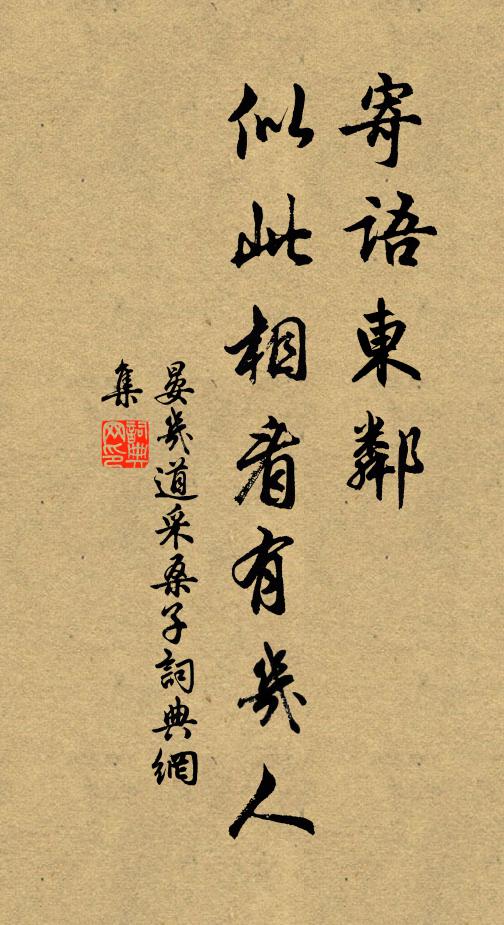 寄語東鄰
似此相看有幾人
晏幾道采桑子詞典網
集
詞典
网印